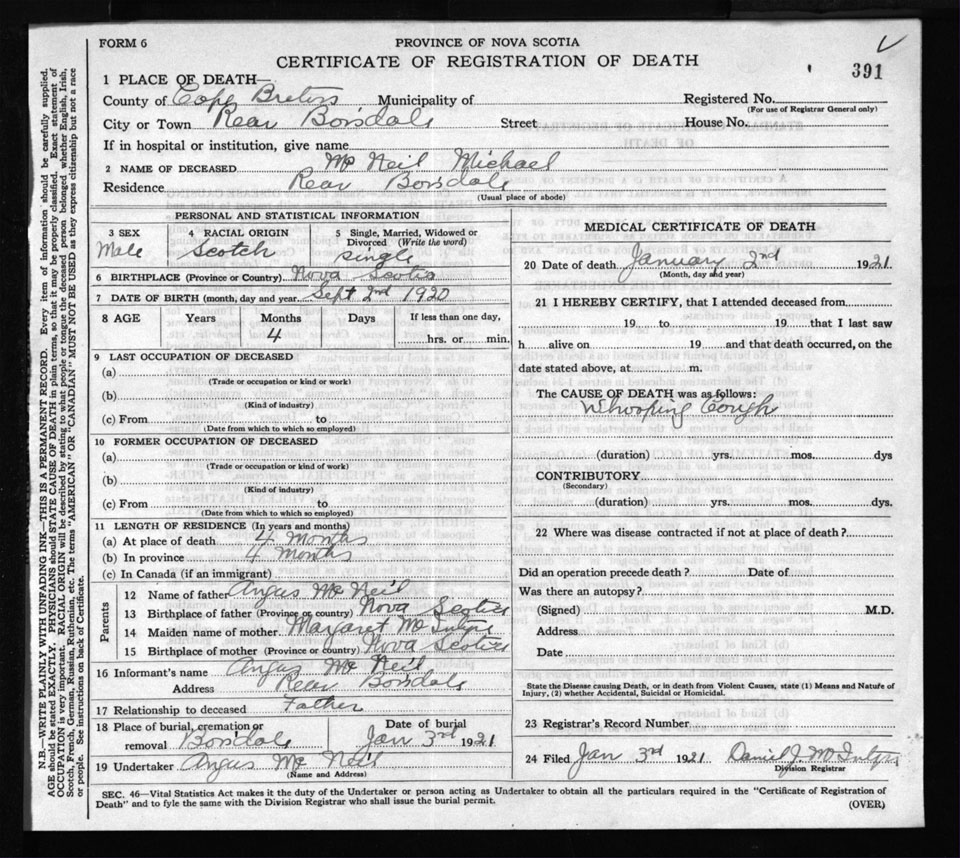 FORM 6
PROVINCE OF NOVA SCOTIA
CERTIFICATE OF REGISTRATION OF DEATH
391
1 PLACE OF DEATH—
County of Cape Breton Municipality of Registered No.
(For use of Registrar General only)
City or Town Rear Boisdale Street House No.
If in hospital or institution, give name
2 NAME OF DECEASED Mc Neil Michael
Residence Rear Boisdale
(Usual place of abode)
PERSONAL AND STATISTICAL INFORMATION
3 SEX Male
4 RACIAL ORIGIN Scotch
5 Single, Married, Widowed or Divorced (Write the word) single
6 BIRTHPLACE (Province or Country) Nova Scotia
7 DATE OF BIRTH (month, day and year Sept 2nd 1920
8 AGE Years Months Days If less than one day,
4 hrs. or min.
9 LAST OCCUPATION OF DECEASED
(a)
(Trade or occupation or kind or work)
(b)
(Kind of industry)
(c) From to
(Date from which to which so employed)
10 FORMER OCCUPATION OF DECEASED
(a)
(Trade or occupation or kind of work)
(b)
(Kind of industry)
(c) From to
(Date from which to which so employed)
11 LENGTH OF RESIDENCE (In years and months)
(a) At place of death 4 months
(b) In province 4 months
(c) In Canada (if an immigrant)
Parents
12 Name of father Angus Mc Neil
13 Birthplace of father (Province or country) Nova Scotia
14 Maiden name of mother Margaret McIntyre
15 Birthplace of mother (Province or country) Nova Scotia
16 Informant's name Angus Mc Neil
Address Rear Boisdale
17 Relationship to deceased Father
18 Place of burial, cremation or Date of burial
removal Boisdale Jan 3rd 1921
19 Undertaker Angus Mc Neil
(Name and Address)
MEDICAL CERTIFICATE OF DEATH
20 Date of death January 2nd 1921
(Month, day and year)
21 I HEREBY CERTIFY, that I attended deceased from
19 to 19 that I last saw
h alive on 19 and that death occurred, on the
date stated above, at m.
The CAUSE OF DEATH was as follows:
Whooping Cough
(duration) yrs. mos. dys
CONTRIBUTORY
(Secondary)
(duration) yrs. mos. dys.
22 Where was disease contracted if not at place of death?
Did an operation precede death? Date of
Was there an autopsy?
(Signed) M.D.
Address
Date
State the Disease causing Death, or in death from Violent Causes, state (1) Means and Nature of
Injury, (2) whether Accidental, Suicidal or Homicidal.
23 Registrar's Record Number
24 Filed Jan 3rd 1921 Daniel J. McIntyre
Division Registrar
SEC. 46—Vital Statistics Act makes it the duty of the Undertaker or person acting as Undertaker to obtain all the particulars required in the "Certificate of Registration of
Death" and to fyle the same with the Division Registrar who shall issue the burial permit.
(OVER)
N.B.—WRITE PLAINLY WITH UNFADING INK—THIS IS A PERMANENT RECORD. Every item of information should be carefully supplied.
AGE should be stated EXACTLY. PHYSICIANS should STATE CAUSE OF DEATH in plain terms, so that it may be properly classified. Exact statement of
OCCUPATION is very important. RACIAL ORIGIN will be described by stating to what people or tongue the deceased person belonged, whether English, Irish,
Scotch, French, German, Russian, Ruthenian, etc. The terms "AMERICAN" OR "CANADIAN" MUST NOT BE USED as they express citizenship but not a race
or people. See instructions on back of Certificate.